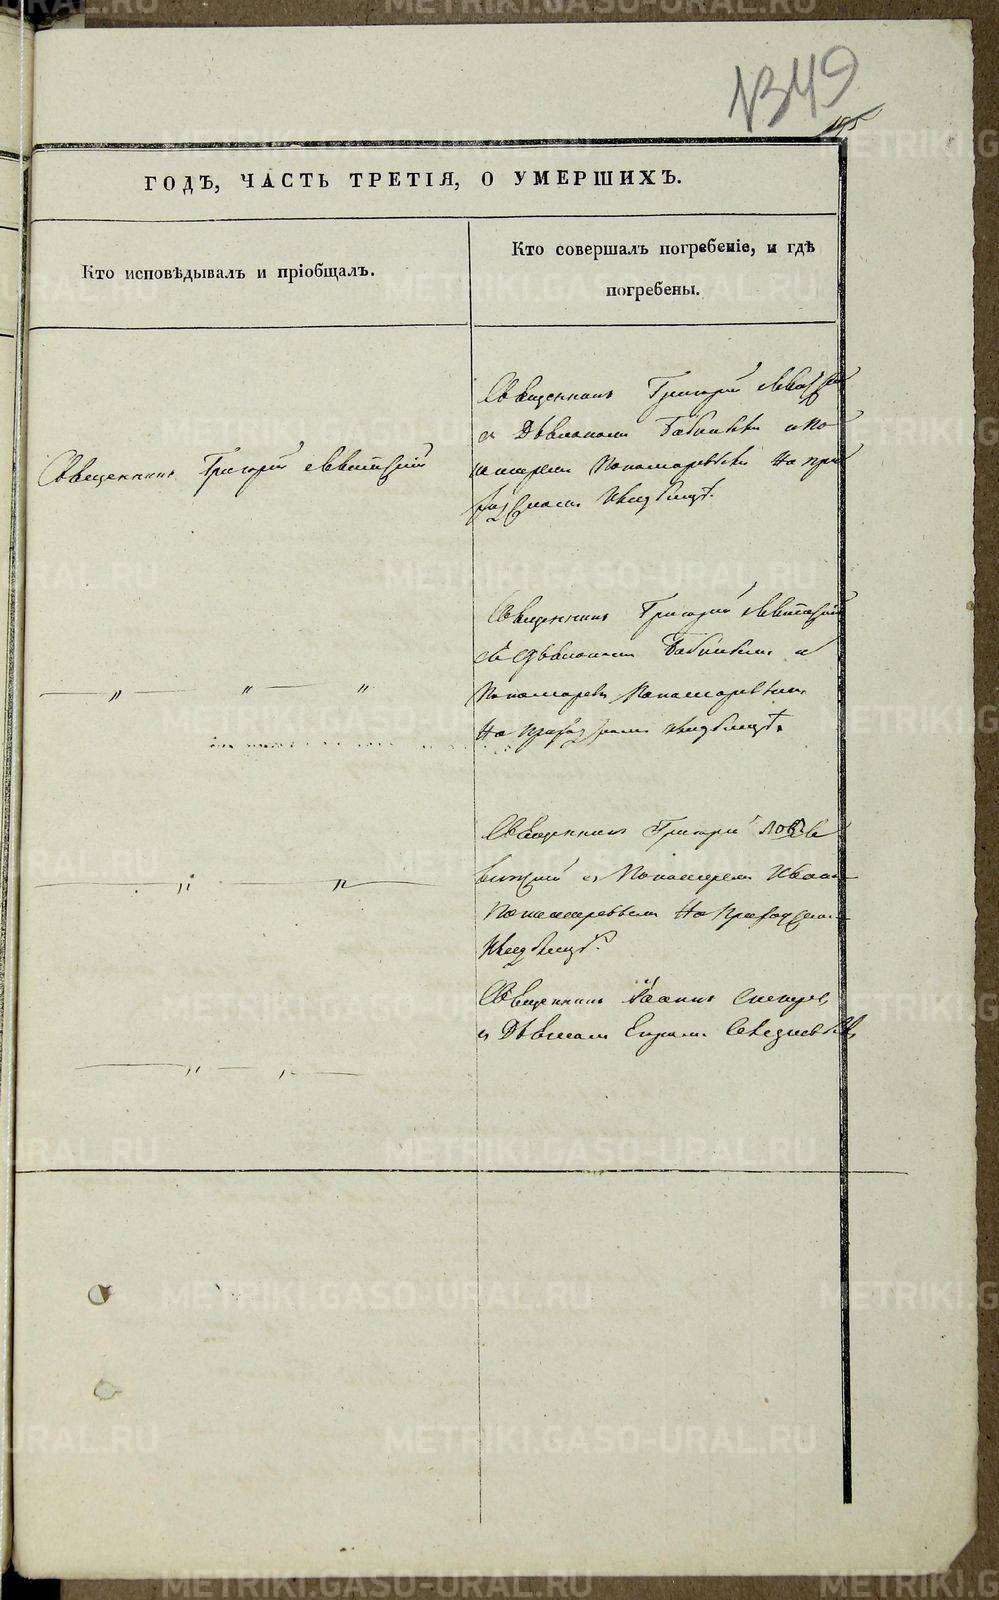 №349
195
ГОДЪ, ЧАСТЬ ТРЕТІЯ, О УМЕРШИХЪ.
Кто исповѣдывалъ и пріобщалъ.
Кто совершалъ погребеніе, и гдѣ
погребены.
Священникъ Григорій Левитскій
Священникъ Григорій Левитскій
съ Дьякономъ и по
номаремъ Пономаревымъ на при
ходскомъ кладбищѣ.
Священникъ Григорій Левитскій
съ Дьякономъ и
Пономаремъ Пономаревымъ
на приходскомъ кладбищѣ.
— „ — „ — „
Священникъ Григорій Ле
витскій съ Пономаремъ Иваномъ
Пономаревымъ на приходскомъ
кладбищѣ.
— „ — „ —
Священникъ Іоаннъ
и Дьяконъ
— „ — „ —
METRIKI.GASO-URAL.RU